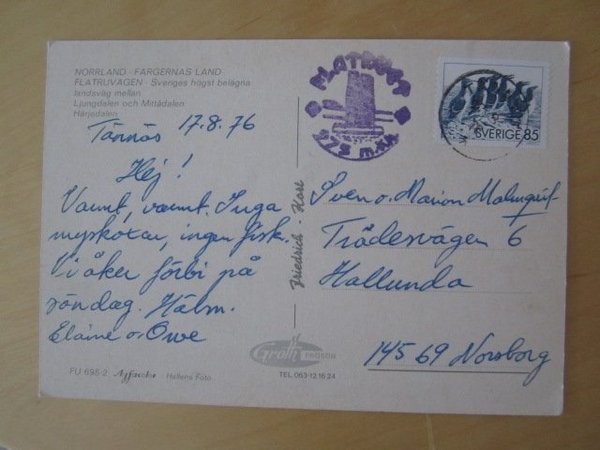 NORRLAND - FÄRGERNAS LAND
FLATRUVÄGEN - Sveriges högst belägna
landsväg mellan
Ljungdalen och Mittådalen
Härjedalen
Tännäs 17.8.76
Hej!
Varmt, varmt. Inga
myskoxar, ingen fisk.
Vi åker förbi på
söndag. Hälsn.
Elaine o Owe
FU 696-2
Hallens Foto
FLATRUET
975 m.ö.h.
SVERIGE 85
Sven o. Marion Malmqvist
Trädesvägen 6
Hallunda
145 69 Norsborg
Grolls
FRÖSÖN
TEL. 063-12 16 24